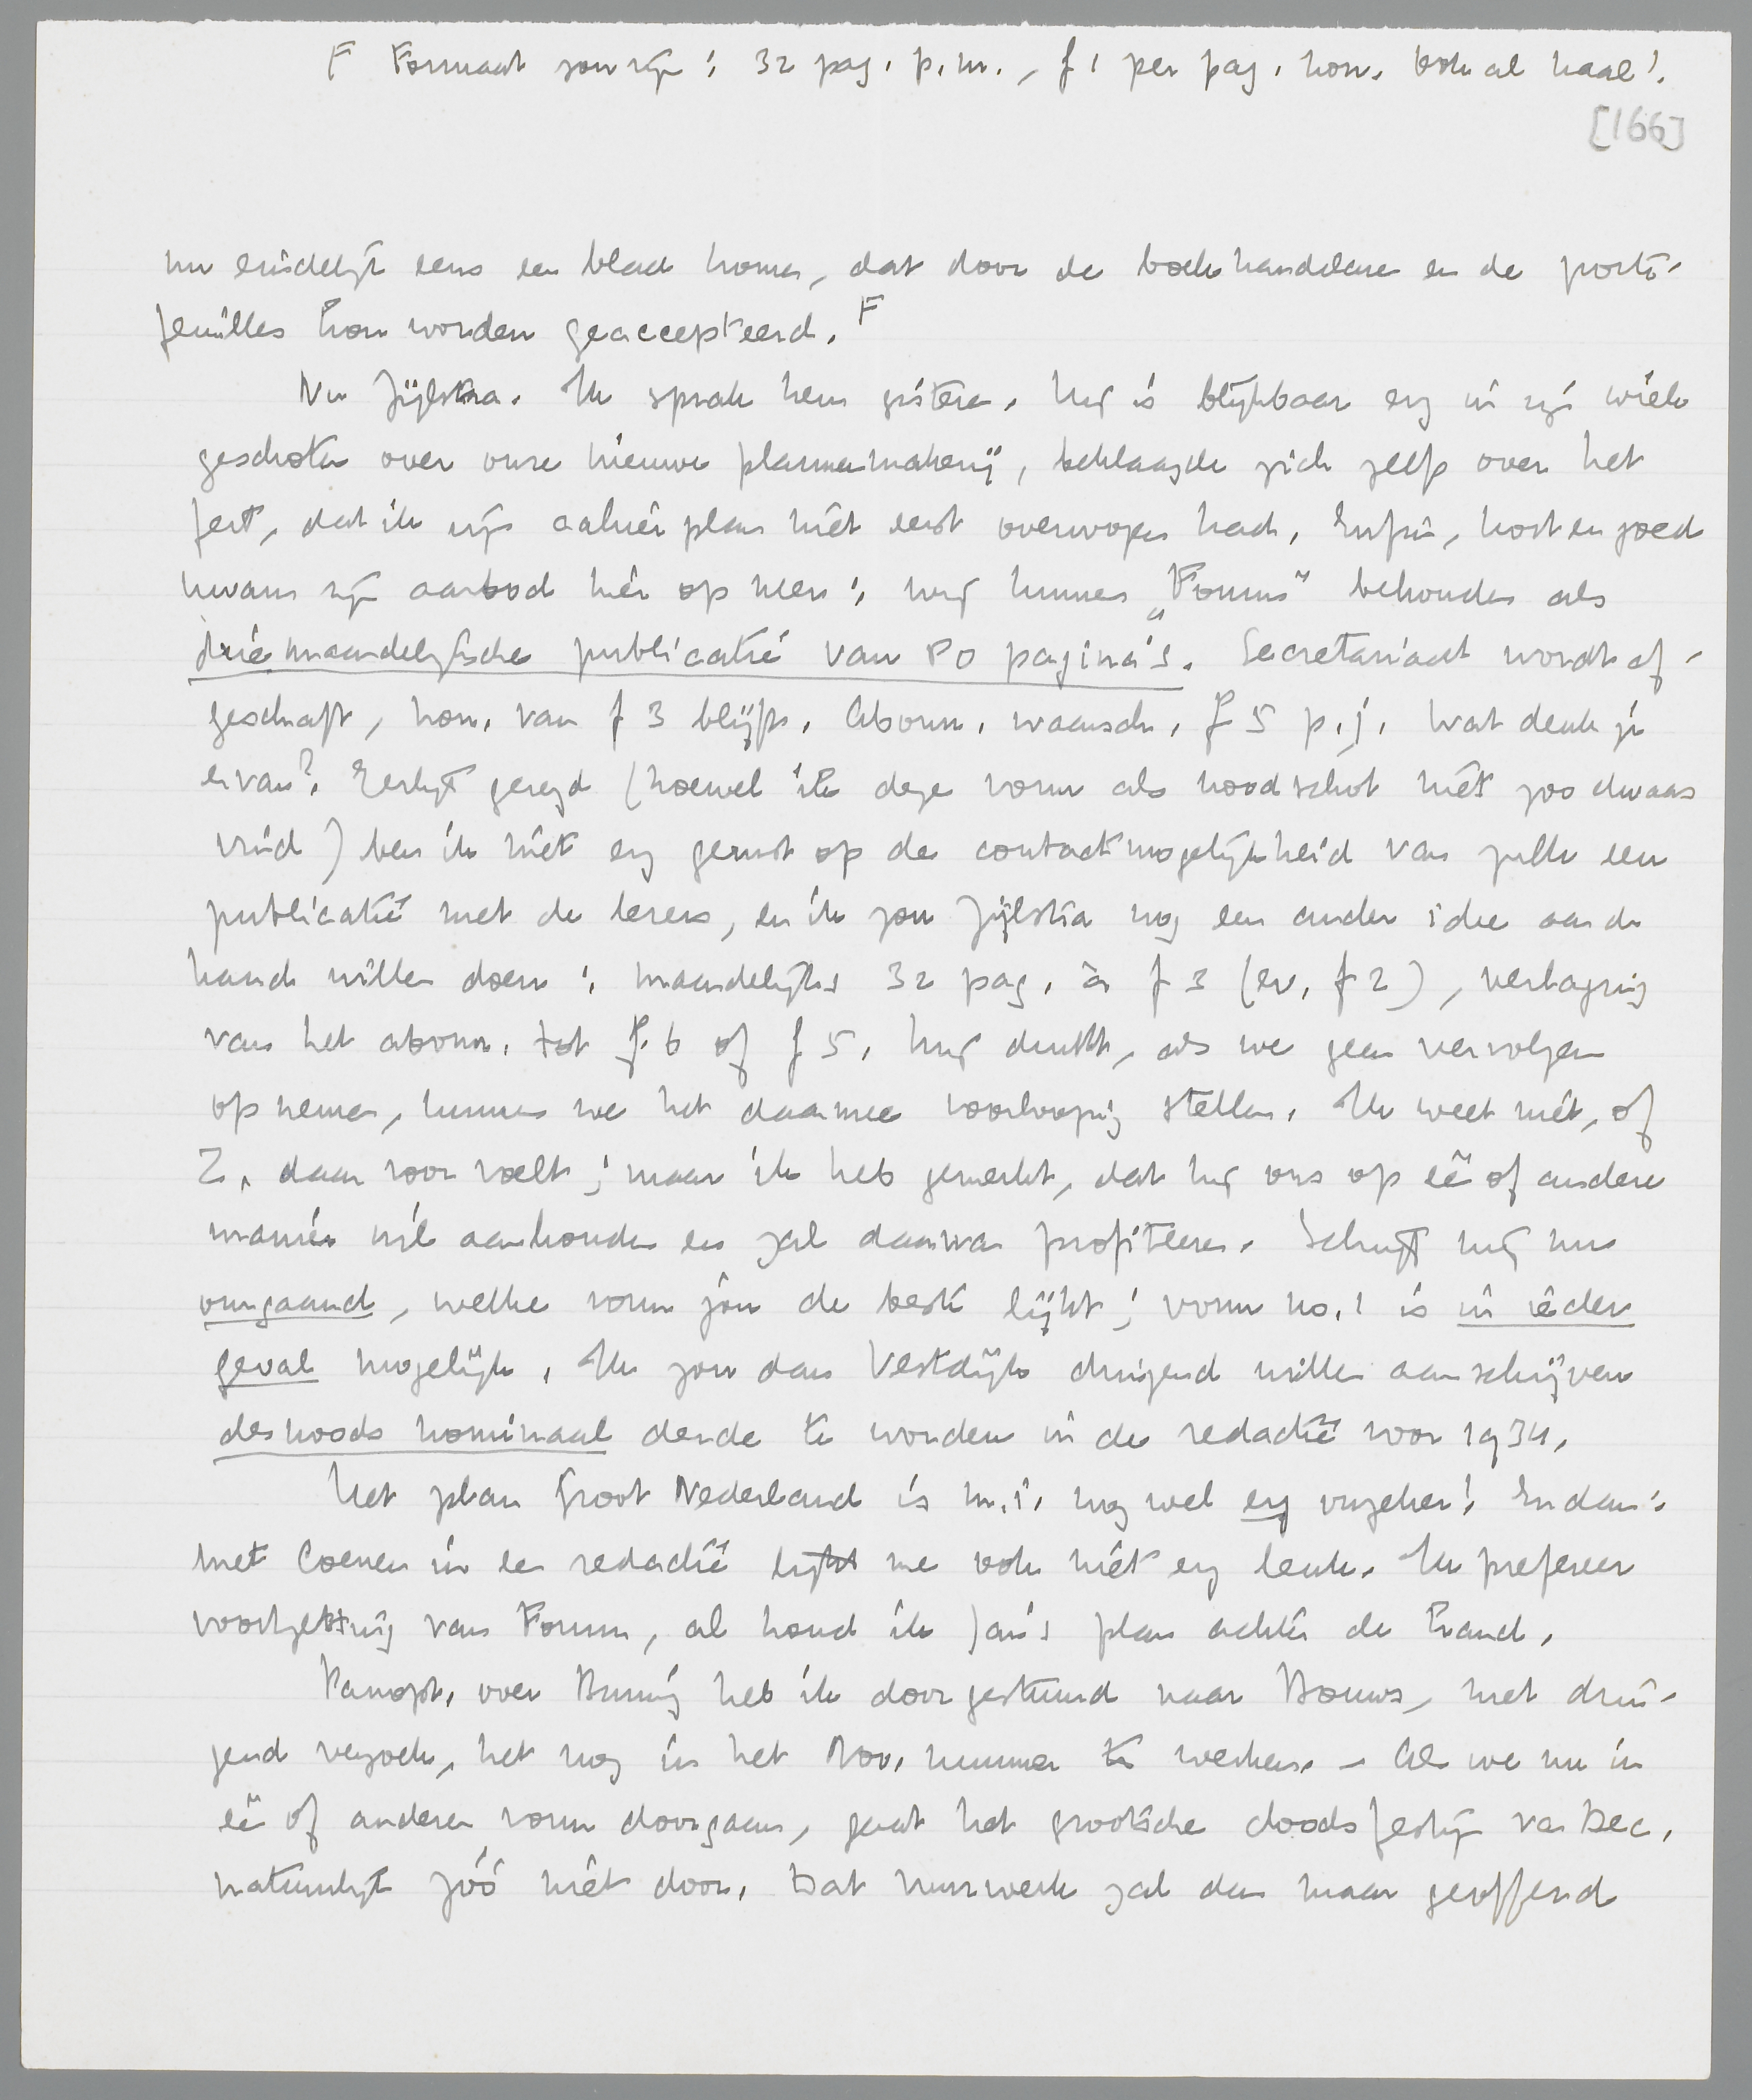 F Formaat zou zijn: 32 pag. p.m., f 1 per pag. hon. Ook al kaal!
[166]
nu eindelijk eens een blad komen, dat door de boekhandelaren en de porte-
feuilles kon worden geaccepteerd. F
Nu Zijlstra. Ik sprak hem gisteren. Hij is blijkbaar erg in zijn wiek
geschoten over onze nieuwe plannenmakerij, beklaagde zich zelfs over het
feit, dat ik zijn cahierplan niet eerst overwogen had. Enfin, kort en goed
kwam zijn aanbod hier op neer: wij kunnen „Forum" behouden als
driemaandelijksche publicatie van 80 pagina's. Secretariaat wordt af-
geschaft, hon. van f 3 blijft. Abonn. waarsch. f 5 p. j. Wat denk je
ervan? Eerlijk gezegd (hoewel ik deze vorm als noodschot niet zoo dwaas
vind) ben ik niet erg gerust op de contactmogelijkheid van zulk een
publicatie met de lezers, en ik zou Zijlstra nog een ander idee aan de
hand willen doen: maandelijks 32 pag. à f 3 (ev. f 2), verlaging
van het abonn. tot f 6 of f 5. Mij dunkt, als we geen vervolgen
opnemen, kunnen we het daarmee voorloopig stellen. Ik weet niet, of
Z. daar voor voelt; maar ik heb gemerkt, dat hij ons op eén of andere
manier wil aanhouden en zal daarvan profiteeren. Schrijf mij nu
omgaand, welke vorm jóu de beste lijkt; vorm no. 1 is in ieder
geval mogelijk. Ik zou dan Vestdijk dringend willen aanschrijven
desnoods nominaal derde te worden in de redactie voor 1934.
Het plan Groot Nederland is m.i. nog wel erg onzeker! En dan:
met Coenen in een redactie lijkt me ook niet erg leuk. Ik prefereer
voortzetting van Forum, al houd ik Jan's plan achter de hand.
Panopt. over Bruning heb ik doorgestuurd naar Bouws, met drin-
gend verzoek, het nog in het Nov. nummer te werken. - Als we nu in
eén of anderen vorm doorgaan, gaat het grootsche doodsfestijn van Dec.
natuurlijk zóó niet door. Dat vuurwerk zal dan maar geofferd